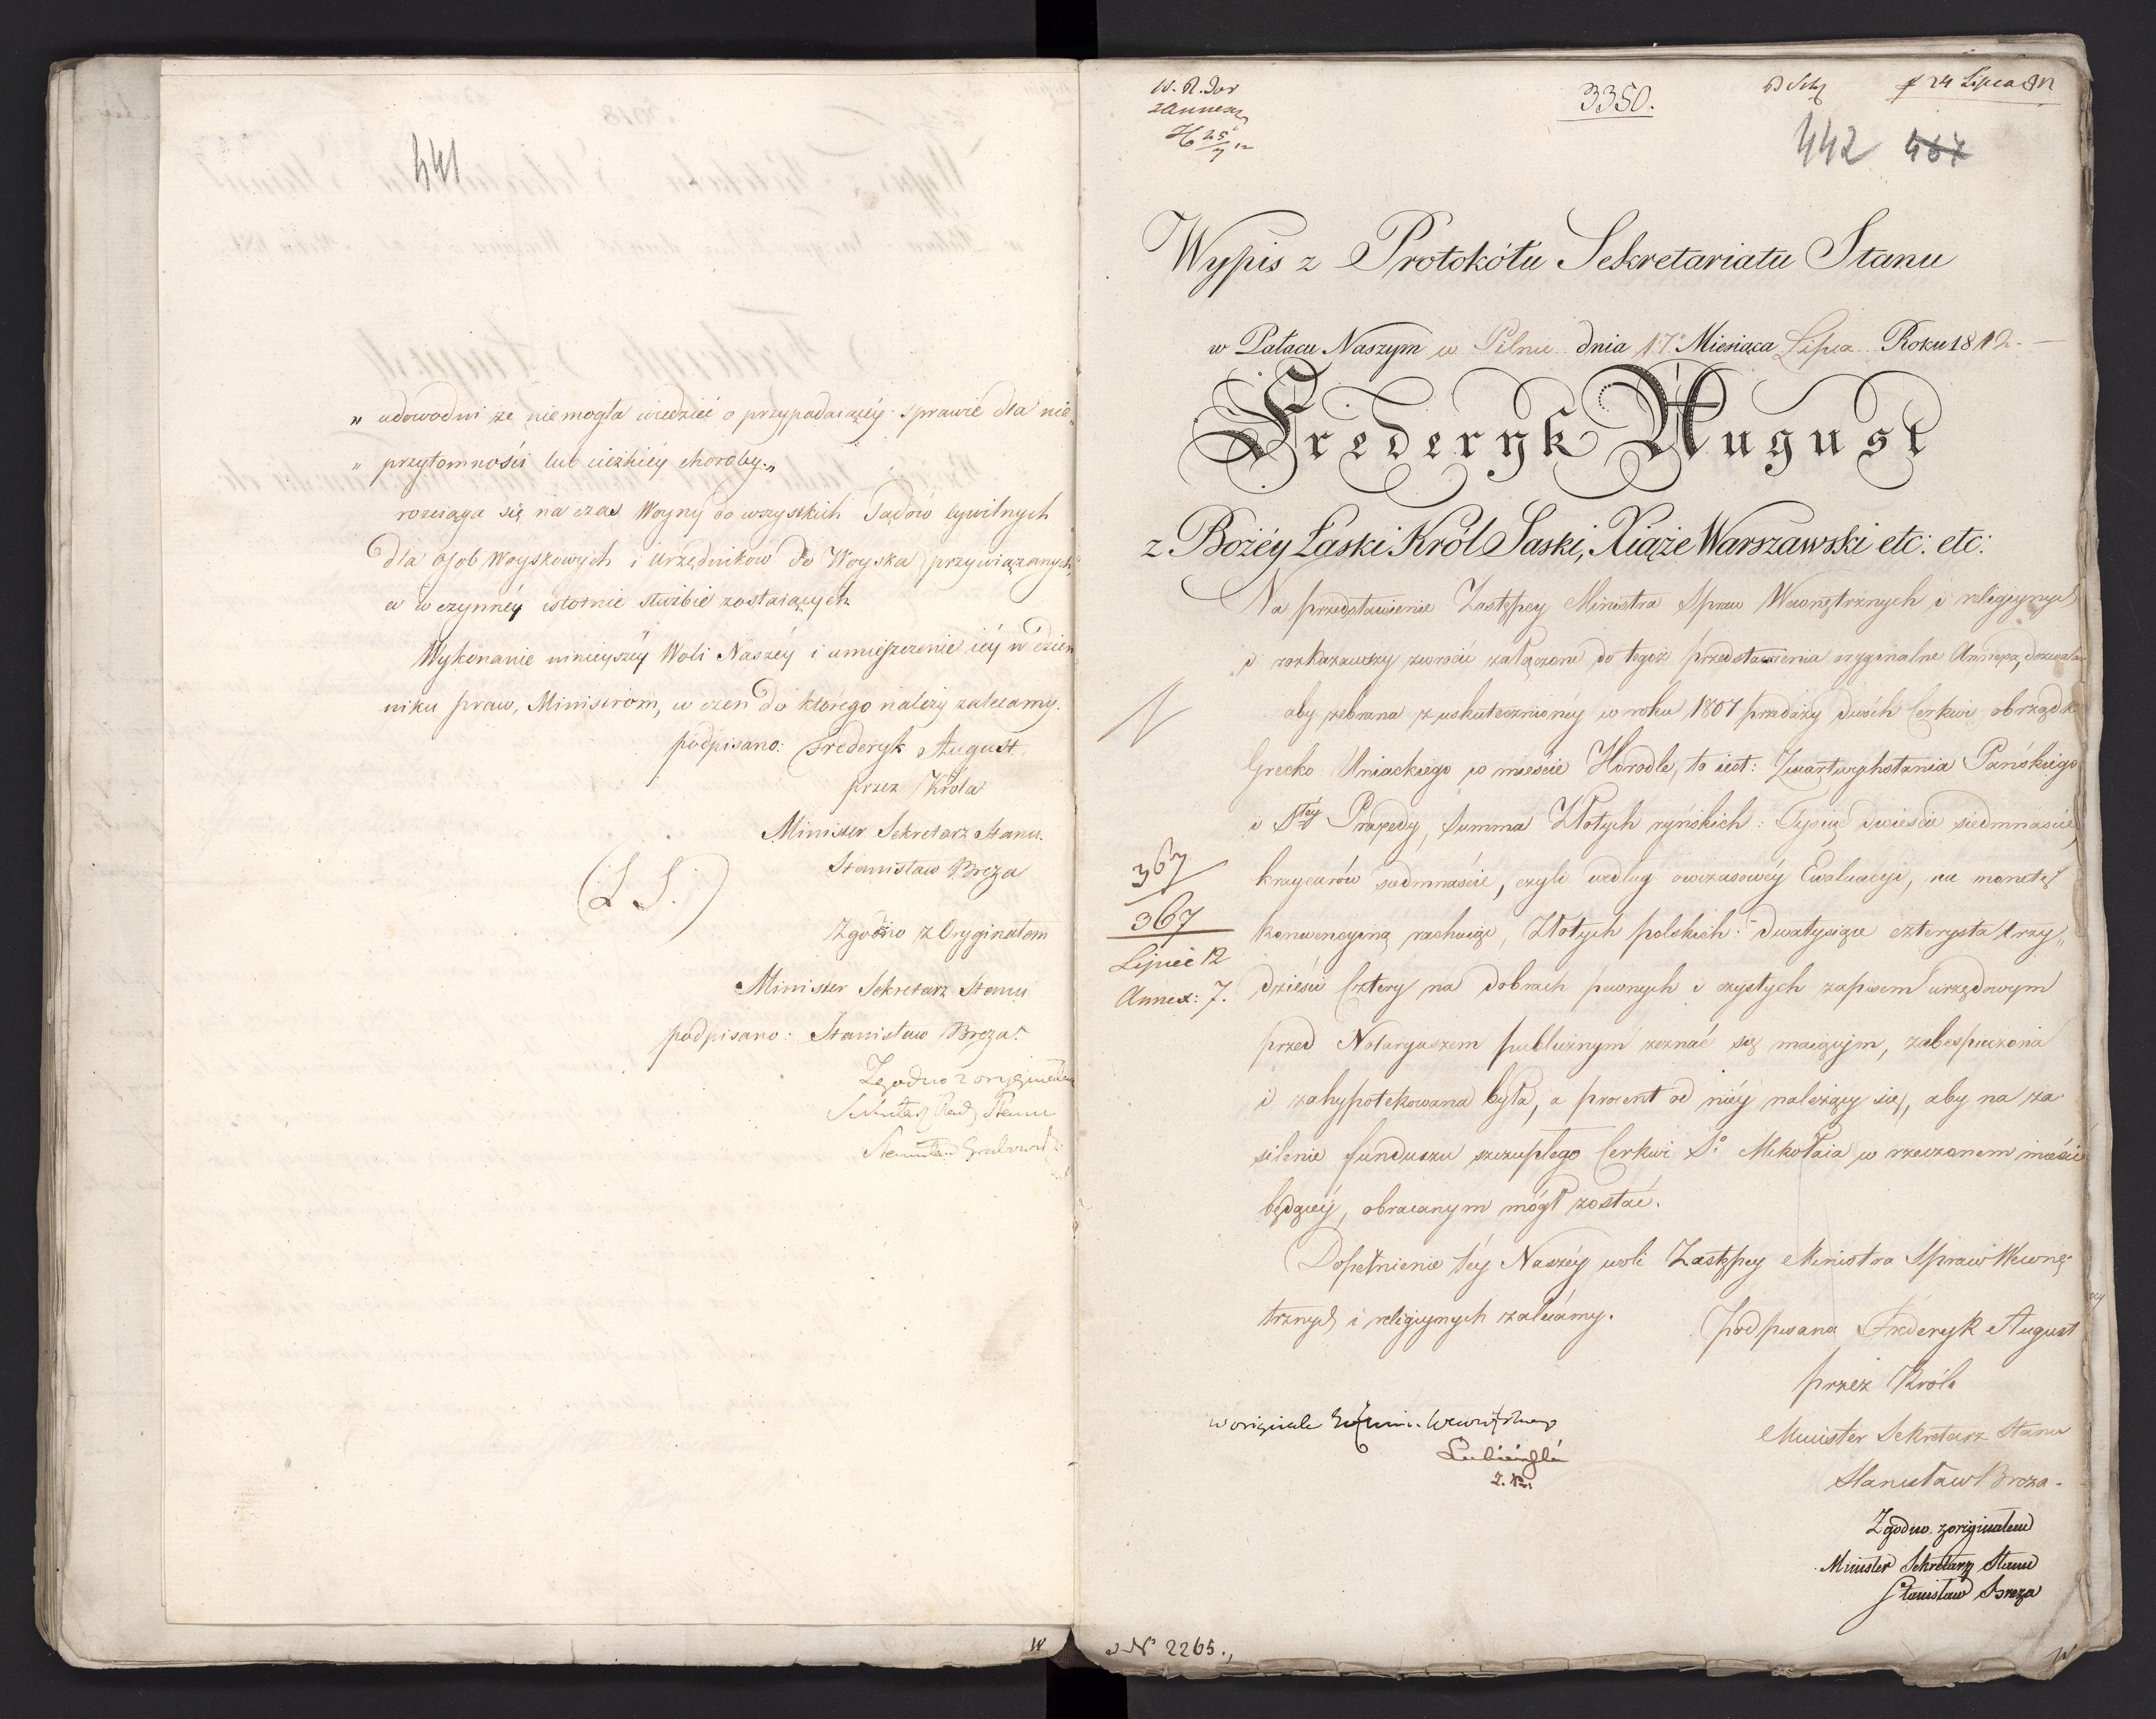 441
„ udowodni że nie mogła wiedzieć o przypadaiącéy sprawie dla nie„
„ przytomności lub ciężkiéy choroby.„
rozciąga się na czas Woyny do wszystkich Sądów cywilnych
dla osob Woyskowych i Urzędników do Woyska przywiązanych,
a w czynnéy istotnie służbie zostaiących
Wykonanie ninieyszéy Woli Naszéy i umieszczenie iéy w dzien
niku praw, Ministrom, w czém do którego należy zalecamy.
podpisano: Frederyk August.
przez Króla
Minister Sekretarz Stanu.
Stanisław Breza
(L S.)
Zgodno z Oryginałem
Minister Sekretarz Stanu
podpisano: Stanisław Breza.
Zgodno z oryginałem
Sekretarz Rady Stanu
Stanisław Grabowski
3350.
24 Lipca
442 467
Wypis z Protokółu Sekretariatu Stanu
w Pałacu Naszym w Pilnic dnia 17. Miesiąca Lipca Roku 1812.
Frederyk August
z Bożéy Łaski Król Saski, Xiąże Warszawski etc: etc:
Na przedstawienie Zastępcy Ministra Spraw Wewnętrznych i religiynych
i rozkazawszy zwrócić załączone do tegoż przedstawienia oryginalne Annexa, dozwalamy
aby zebrana z uskutecznionéy w roku 1807 przedaży dwóch Cerkwi obrządku
Grecko Uniackiego w mieście Horodle, to iest: Zmartwychwstania Pańskiego
i Stéy Praxedy, summa Złotych ryńskich: Tysiąc dwieście siedmnaście,
kraycarów siedmnaście, czyli według owczasowéy Ewaluacyi, na monetę
konwencyiną rachuiąc, Złotych polskich: dwatysiące czterysta trzy„
dzieści cztery na dobrach pewnych i czystych zapisem urzędowym
przed Notaryuszem publicznym zeznać się maiącym, zabespieczona
i zahypotekowana była, a procent od niéy należący się, aby na za
silenie funduszu szczupłego Cerkwi S. Mikołaia w rzeczonem mieście
będącéy, obracanym mógł zostać.
Dopełnienie téy Naszéy woli Zastępcy Ministra Spraw Wewnę
trznych i religiynych zalecamy.
367
367
Lipiec 12
Annex: 7.
podpisano Frederyk August
przez Króla
Minister Sekretarz Stanu
Stanisław Breza.
Zgodno z originałem
Minister Sekretarz Stanu
Stanisław Breza
Nº 2265.,